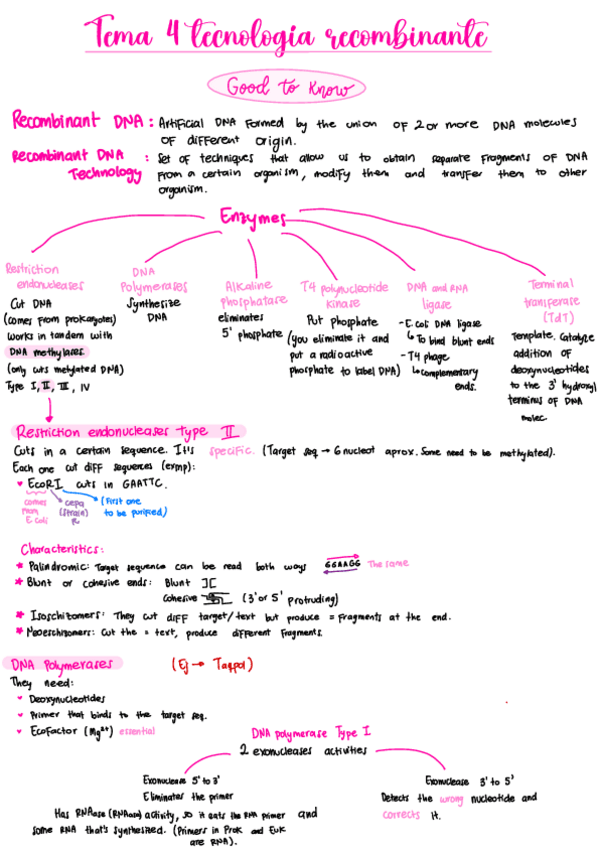 Tema 4 tecnología recombinante
Good to Know
Recombinant DNA : Artificial DNA formed by the union of 2 or more DNA molecules
of different origin.
Recombinant DNA Technology : Set of techniques that allow us to obtain separate fragments of DNA
from a certain organism, modify them and transfer them to other
organism.
Enzymes
Restriction
endonucleases
Cut DNA
(comes from prokaryotes)
Works in tandem with
DNA methylases
(only cuts metylated DNA)
Type I, II, III, IV
DNA
Polymerases
Synthesize
DNA
Alkaline
phosphatase
eliminates
5' phosphate
T4 polynucleotide
kinase
Put phosphate
(you eliminate it and
put a radioactive
phosphate to label DNA)
DNA and RNA
ligase
- E. coli DNA ligase
↳ To bind blunt ends
- T4 phage
↳ complementary
ends.
Terminal
transferase
(TdT)
Template. Catalyze
addition of
deoxynucleotides
to the 3' hydroxyl
terminus of DNA
molec.
Restriction endonucleases type II
Cuts in a certain sequence. It's specific. (Target seq → 6 nucleot aprox. Some need to be methylated).
Each one cut diff sequences (exmp):
♥ EcoRI cuts in GAATTC.
comes
from
E. coli
cepa
(strain)
R
(First one
to be purified)
Characteristics:
* Palindromic: Target sequence can be read both ways GGAAGG The same
* Blunt or cohesive ends: Blunt
cohesive (3' or 5' protruding)
* Isoschizomers: They cut diff target/text but produce = fragments at the end.
* Neoeschizomers: Cut the = text, produce different fragments.
DNA Polymerases (Ej → Taqpol)
They need:
♥ Deoxynucleotides
♥ Primer that binds to the target seq.
♥ Ecofactor (Mg²⁺) essential
DNA polymerase Type I
2 exonucleases activities
Exonuclease 5' to 3'
Eliminates the primer
Has RNAase (RNAase) activity, so it eats the RNA primer and
some RNA that's synthesized. (Primers in Prok and Euk
are RNA).
Exonuclease 3' to 5'
Detects the wrong nucleotide and
corrects it.